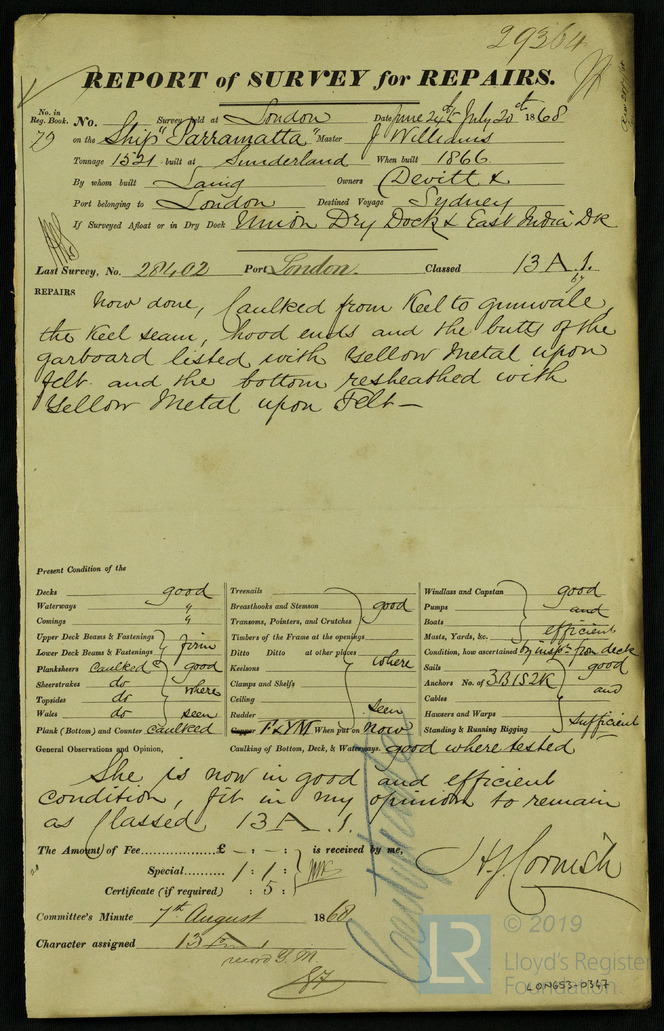 29364
REPORT of SURVEY for REPAIRS.
No. in Reg. Book. No. Survey held at London Date June 24th July 20th 1868
79 on the Ship "Parramatta" Master J Williams
Tonnage 1521 built at Sunderland When built 1866
By whom built Laing Owners Devitt &
Port belonging to London Destined Voyage Sydney
If Surveyed Afloat or in Dry Dock Union Dry Dock & East India Dk
Last Survey, No. 28402 Port London. Classed 13 A.1.
REPAIRS Now done, Caulked from Keel to gunwale,
the Keel seam, hood ends and the butts of the
garboard listed with Yellow Metal upon
felt and the bottom resheathed with
Yellow Metal upon Felt—
Present Condition of the
Decks good
Waterways "
Comings "
Upper Deck Beams & Fastenings
Lower Deck Beams & Fastenings firm
Planksheers Caulked good
Sheerstrakes do where
Topsides do
Wales do seen
Plank (Bottom) and Counter caulked
Treenails
Breasthooks and Stemson good
Transoms, Pointers, and Crutches
Timbers of the Frame at the openings
Ditto Ditto at other places where
Keelsons
Clamps and Shelfs
Ceiling
Rudder seen
Copper F&YM When put on now
Windlass and Capstan good
Pumps and
Boats
Masts, Yards, &c. efficient
Condition, how ascertained by inspn from deck
Sails good
Anchors No. of 3B1S2K
Cables and
Hawsers and Warps
Standing & Running Rigging sufficient
General Observations and Opinion, Caulking of Bottom, Deck, & Waterways. good where tested
She is now in good and efficient
condition, fit in my opinion to remain
as Classed 13 A.1.
The Amount of Fee £ - : - : is received by me,
Special 1 : 1 :
Certificate (if required) : 5 :
H J Cornish
Committee's Minute 7th August 1868
Character assigned 13 A 1
record Y.M.
© 2019
LR
Lloyd's Register
Foundation
LON653-0347